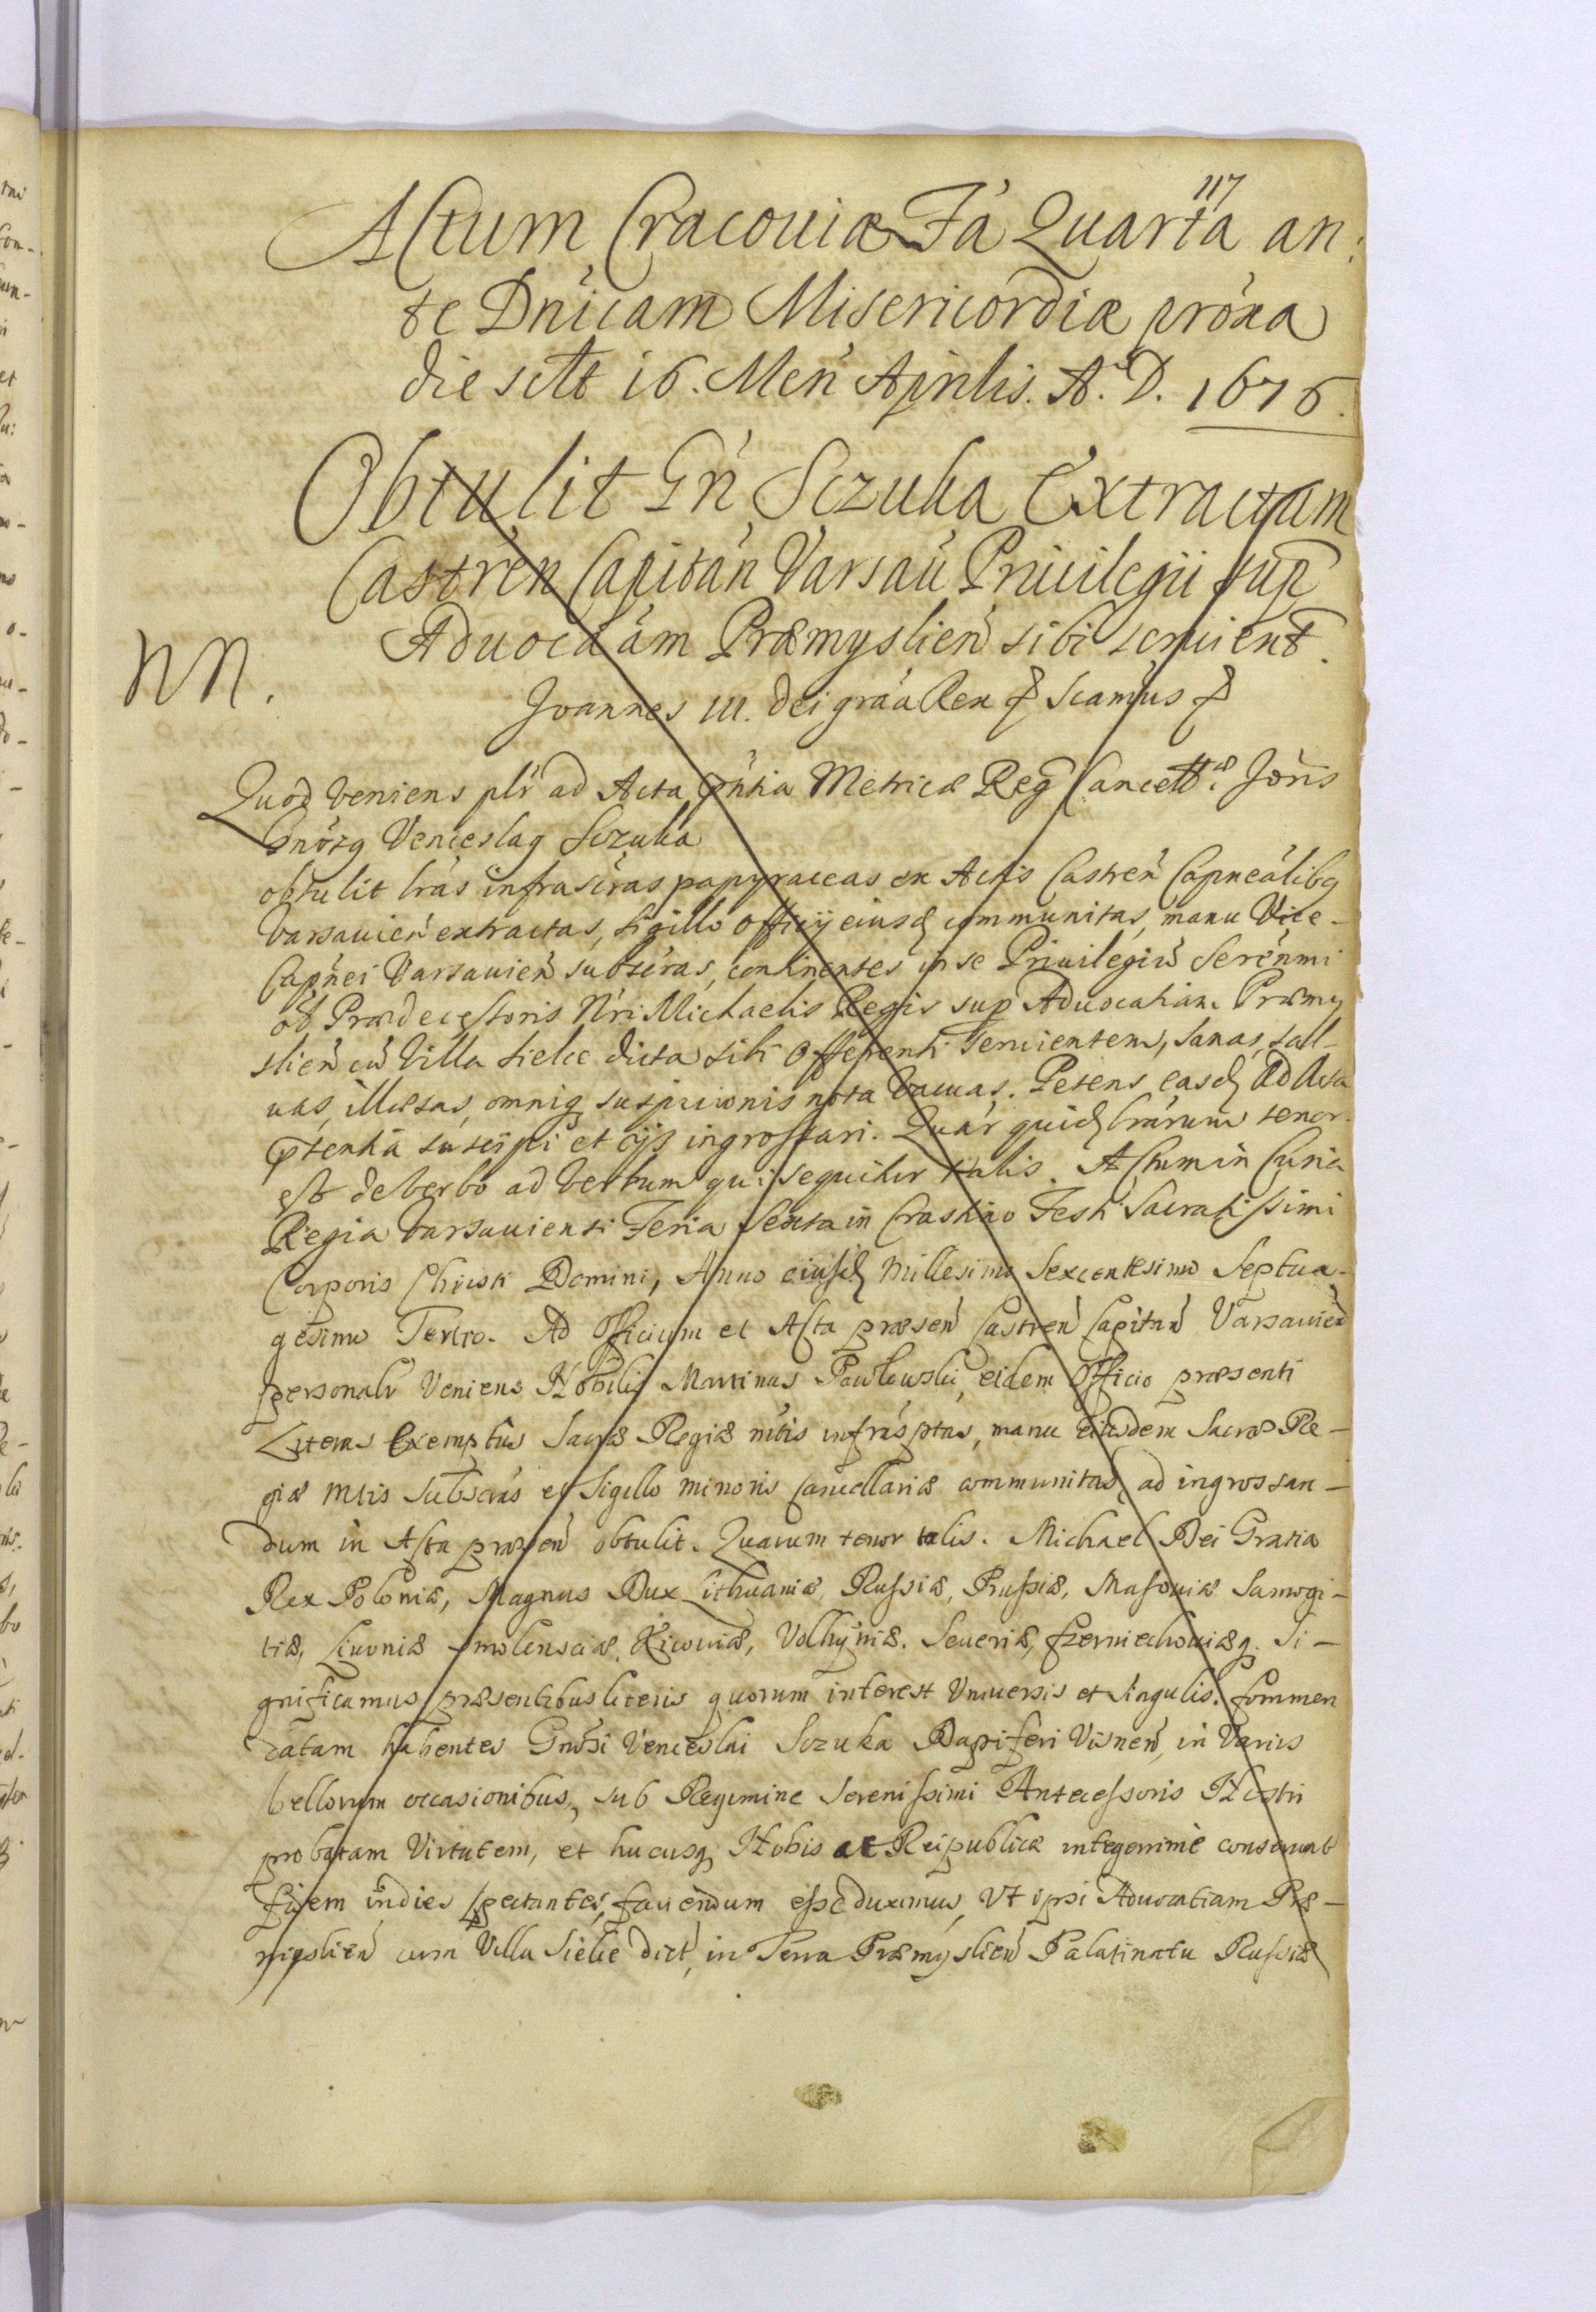 117
Actum Cracouiæ Fa Quarta an:
te Dnicam Misericordiæ proxa
die sclt 16. Men Aprilis. A. D. 1676.
Obtulit Gn Sczuka Extractam
Castren Capitan Varsau Priuilegii sup
Aduocaam Præmyslien sibi seruient.
NN.
Joannes III. Dei graa Rex & Scamus &
Quod veniens plr ad Acta pntia Metricæ Reg Cancell.æ Joris
Gnosq Venceslaq Sczuka
obtulit lras infrascras papyraceas ex Actis Castren Capnealibq
Varsauien extractas, sigillo officij eiusd communitas, manu Vice-
Capnei Varsauien subscras, continentes in se Priuilegiu Serenmi
ol Prædecessoris Nri Michaelis Regis sup Aduocatian Præmy
slien cu Villa Sielce dicta sibi Offerenti seruientem, sanas, sal-
uas, illæsas, omniq suspicionis nota vacuas. Petens easd Ad Acta
pntentia suscipi et ijs ingrossari. Quar quid lrarum tenor
est de verbo ad verbum qui sequitur talis. Actum in Curia
Regia Varsauiensi Feria Sexta in Crastino Festi Sacratissimi
Corporis Christi Domini, Anno eiusd Millesimo Sexcentesimo Septua-
gesimo Tertio. Ad Officium et Acta præsen Castren Capitan Varsauien
personalr Veniens Nobilis Martinus Pawłowski, eidem Officio præsenti
Literas Exemptus Sacræ Regiæ mtis infrasptas, manu eiusdem Sacræ Re-
giæ Mtis Subscras et Sigillo minoris Cancellariæ communitas ad ingrossan-
dum in Acta præsen obtulit. Quarum tenor talis. Michael Dei Gratia
Rex Poloniæ, Magnus Dux Lithuaniæ, Russiæ, Prussiæ, Masouiæ Samogi-
tiæ, Liuoniæ Smolensciæ, Kiiouiæ, Volhyniæ. Seueriæ, Czerniechouiæq. Si-
gnificamus præsentibus literis quorum interest Vniuersis et singulis. Commen
datam habentes Gnosi Venceslai Sczuka Dapiferi Visnen, in Varijs
bellorum occasionibus, sub Regimine Serenissimi Antecessoris Nostri
probatam Virtutem, et hucusq Nobis ac Reipublicæ integerrime conseruat
fidem indies spectantes, fauendum esse duximus, Vt ipsi Aduocatiam Præ-
mislien cum Villa Sielce dict, in Terra Præmyslien Palatinatu Russiæ